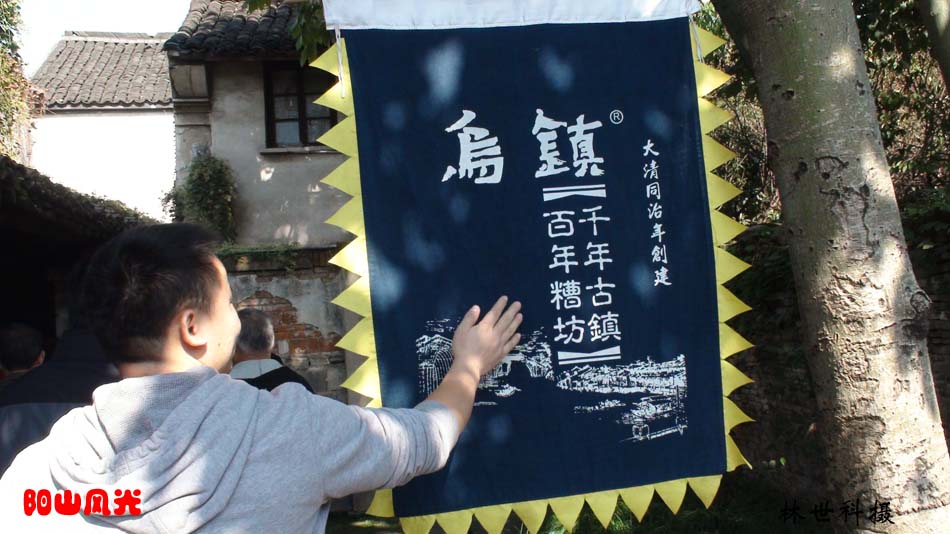 烏鎮®
大清同治年創建
千年古鎮
百年糟坊
阳山风光
林世科摄